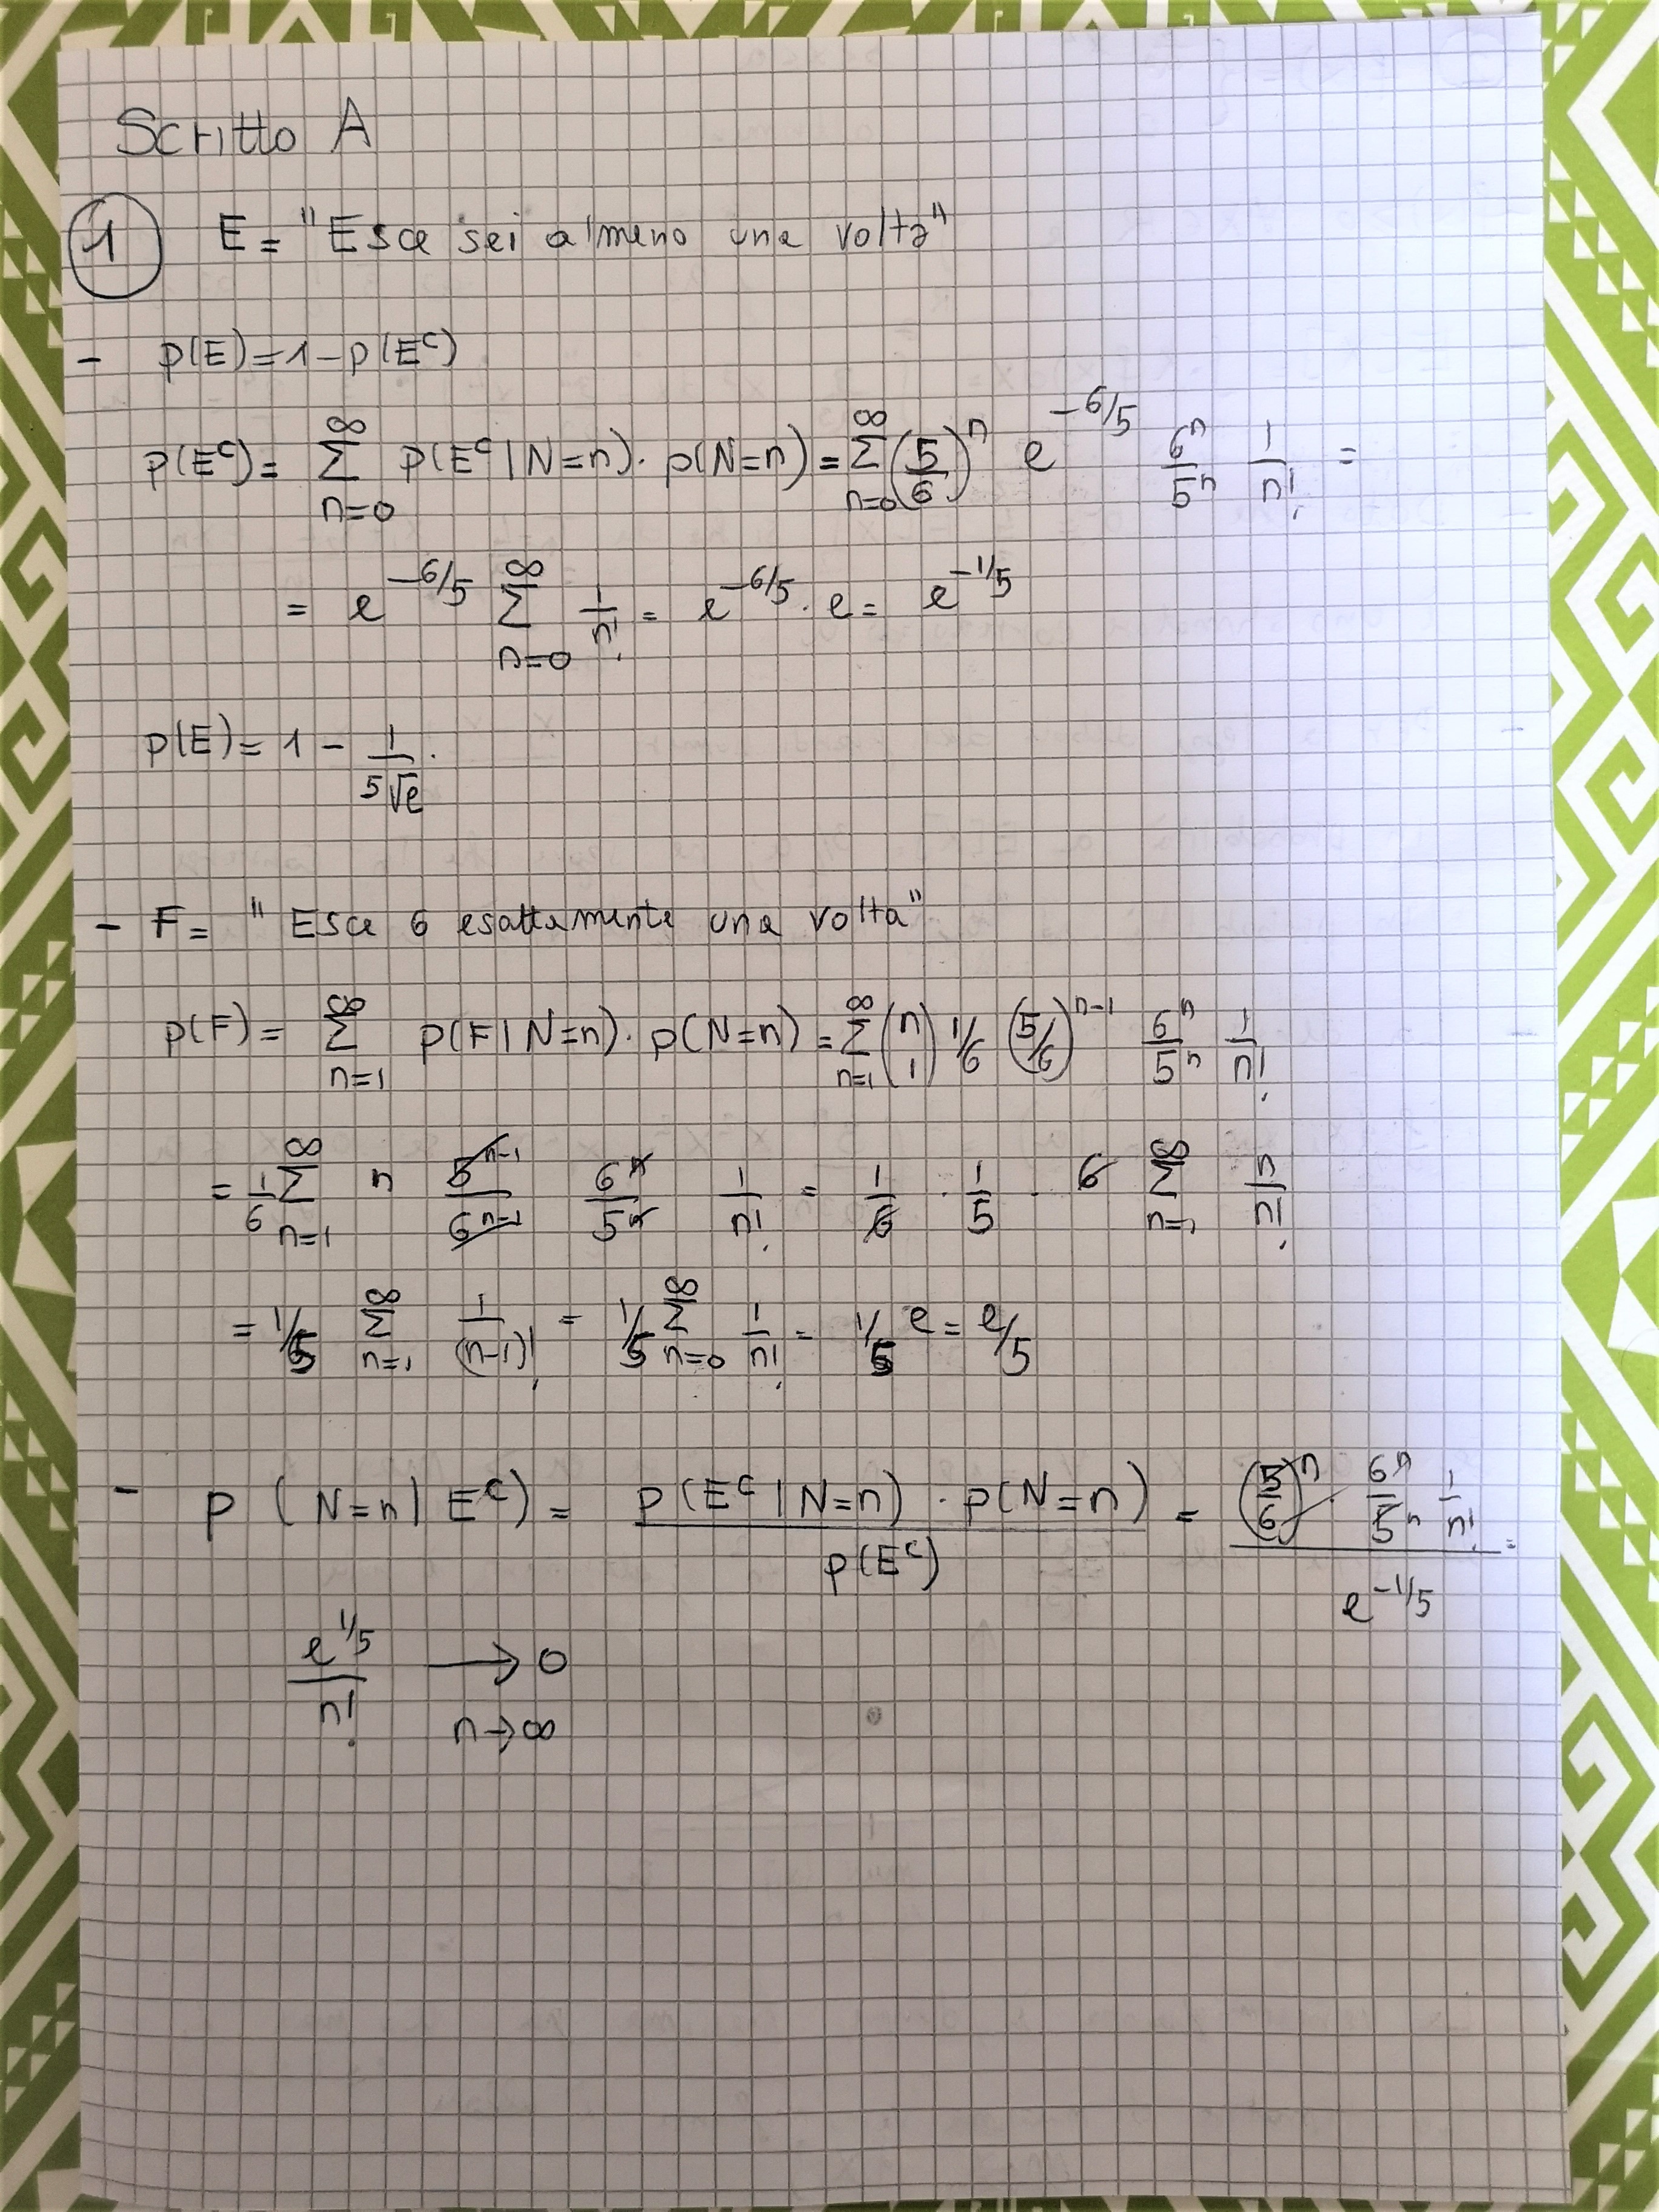 Scritto A
1 E = "Esce sei almeno una volta"
- p(E) = 1 - p(E^c)
p(E^c) = ∑_{n=0}^{∞} p(E^c | N=n) · p(N=n) = ∑_{n=0}^{∞} (5/6)^n e^{-6/5} 6^n/5^n 1/n! =
= e^{-6/5} ∑_{n=0}^{∞} 1/n! = e^{-6/5} · e = e^{-1/5}
p(E) = 1 - 1/⁵√e .
- F = "Esce 6 esattamente una volta"
p(F) = ∑_{n=1}^{∞} p(F | N=n) · p(N=n) = ∑_{n=1}^{∞} (n 1) 1/6 (5/6)^{n-1} 6^n/5^n 1/n!
= 1/6 ∑_{n=1}^{∞} n 5^{n-1}/6^{n-1} 6^n/5^n 1/n! = 1/6 · 1/5 · 6 ∑_{n=1}^{∞} n/n!
= 1/5 ∑_{n=1}^{∞} 1/(n-1)! = 1/5 ∑_{n=0}^{∞} 1/n! = 1/5 e = e/5
- p (N=n | E^c) = p(E^c | N=n) · p(N=n) / p(E^c) = (5/6)^n · 6^n/5^n 1/n! / e^{-1/5} =
e^{1/5}/n! → 0 n→∞